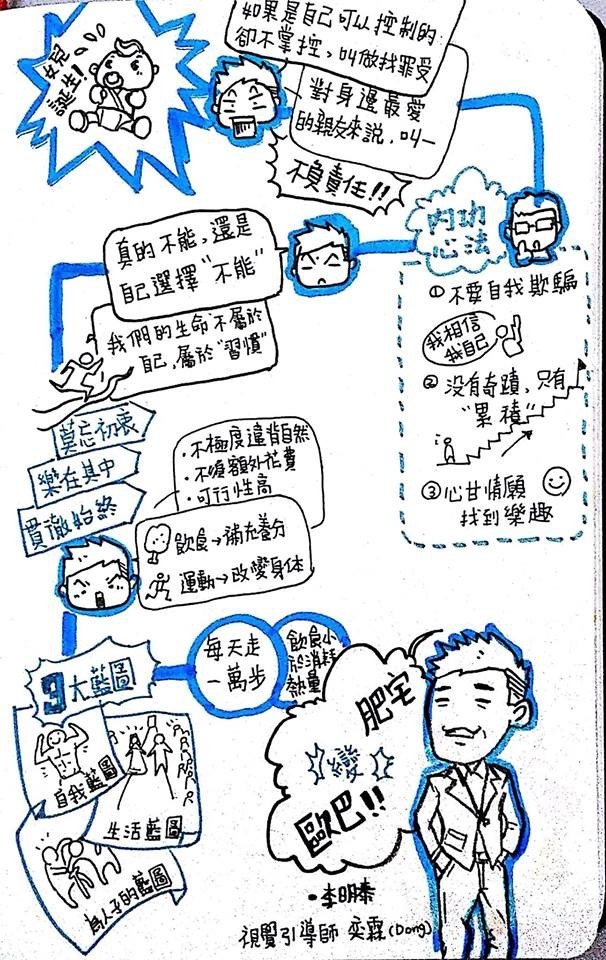 女兒
誕生!
如果是自己可以控制的
卻不掌控,叫做找罪受
對身邊最愛
的親友來說,叫—
不負責任!!
內功
心法
① 不要自我欺騙
我相信
我自己
② 沒有奇蹟,只有
“累積”
③ 心甘情願
找到樂趣
真的不能,還是
自己選擇“不能”
我們的生命 不屬於
自己,屬於“習慣”
莫忘初衷
樂在其中
貫徹始終
·不極度違背自然
·不須額外花費
·可行性高
飲食→補充養分
運動→改變身体
9大藍圖
自我藍圖
生活藍圖
為人子的藍圖
每天走
一萬步
飲食小
於消耗
熱量
肥宅
變
歐巴!!
·李明
視覺引導師 奕霖(Dong)